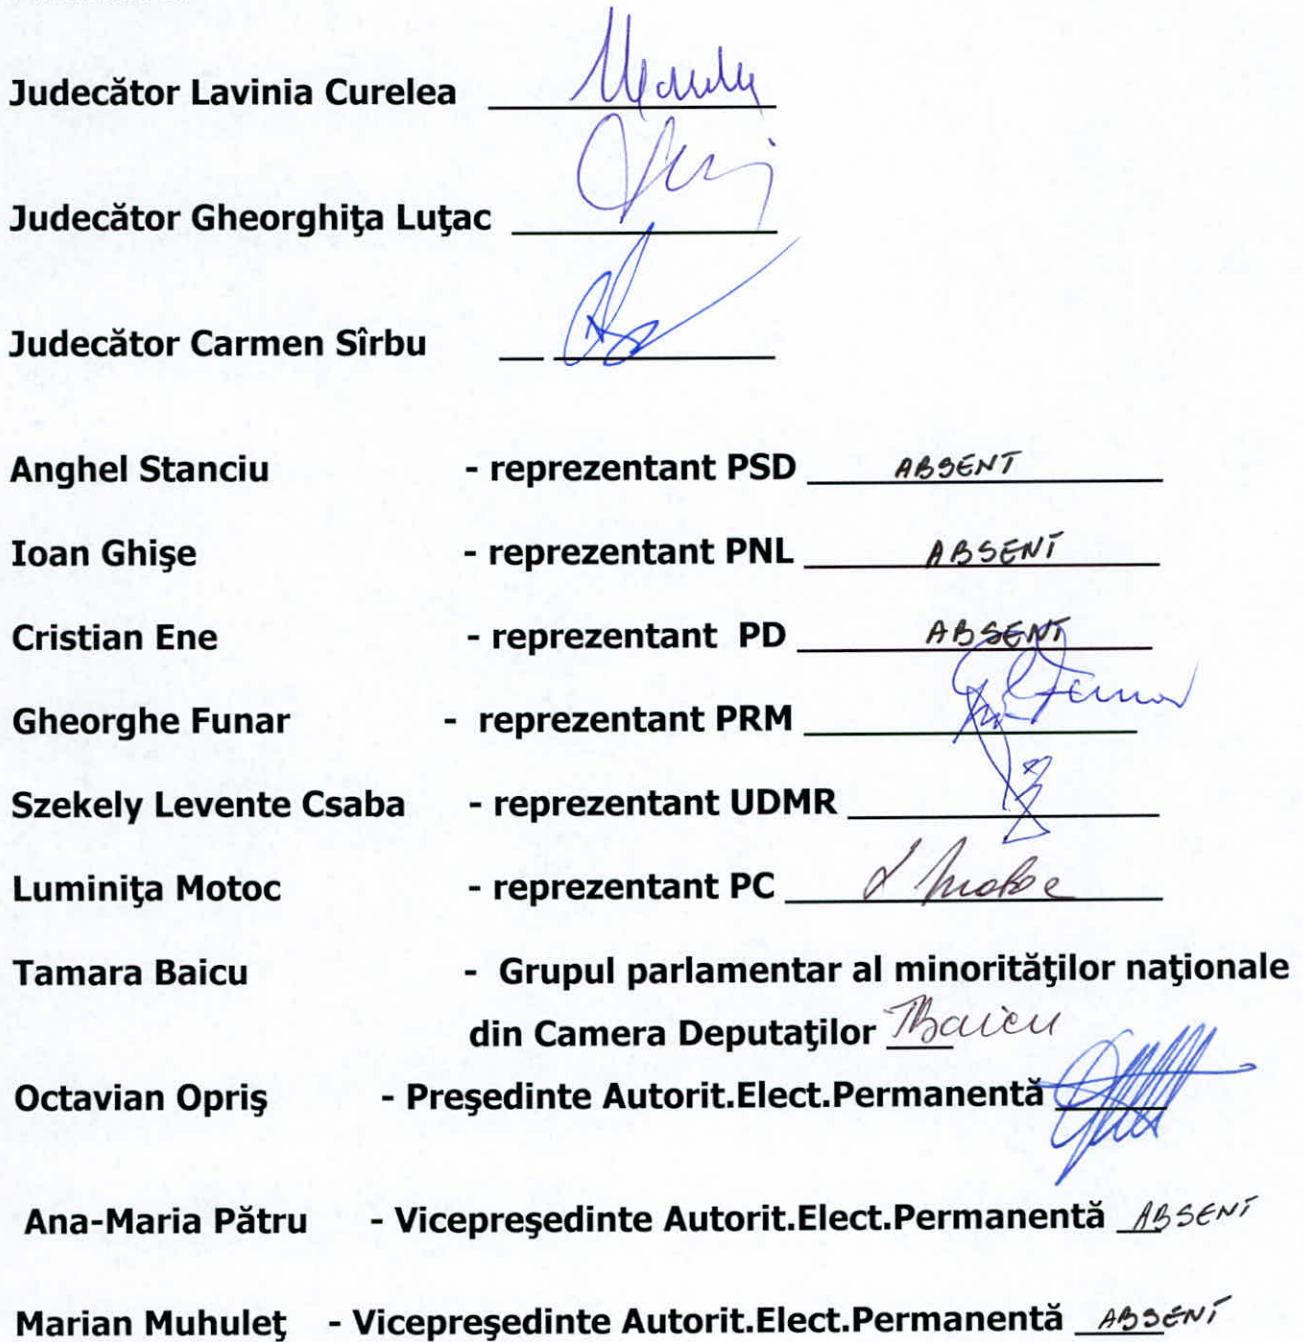 Judecător Lavinia Curelea
Judecător Gheorghiţa Luţac
Judecător Carmen Sîrbu
Anghel Stanciu - reprezentant PSD ABSENT
Ioan Ghişe - reprezentant PNL ABSENT
Cristian Ene - reprezentant PD ABSENT
Gheorghe Funar - reprezentant PRM Funar
Szekely Levente Csaba - reprezentant UDMR
Luminiţa Motoc - reprezentant PC L Motoc
Tamara Baicu - Grupul parlamentar al minorităţilor naţionale
din Camera Deputaţilor TBaicu
Octavian Opriş - Preşedinte Autorit.Elect.Permanentă
Ana-Maria Pătru - Vicepreşedinte Autorit.Elect.Permanentă ABSENT
Marian Muhuleţ - Vicepreşedinte Autorit.Elect.Permanentă ABSENT